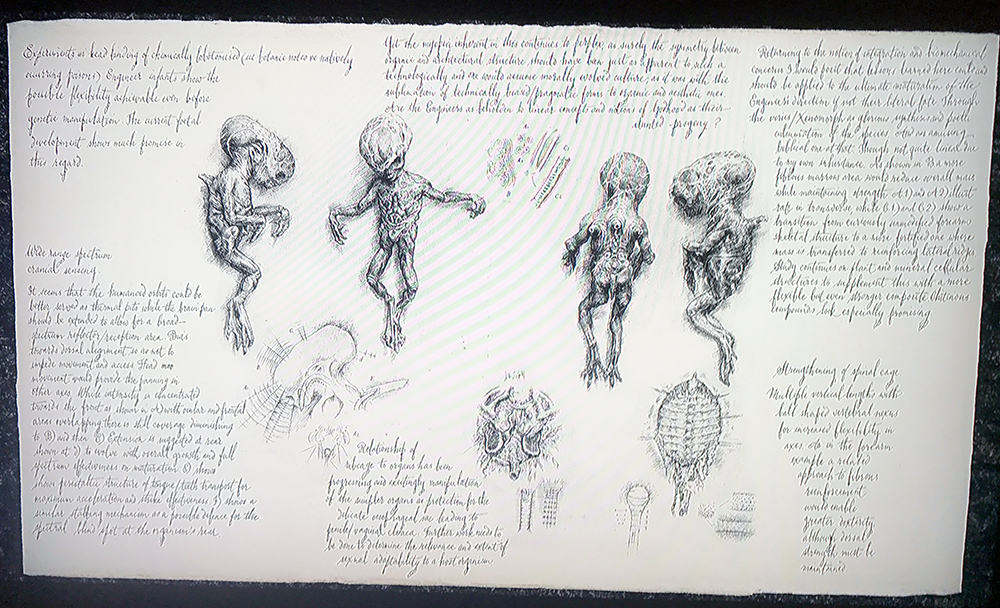 Experiments on head binding of chemically lobotomised (see botanic notes on natively
occurring poisons) Engineer infants show the
possible flexibility achievable even before
genetic manipulation. The current foetal
development shows much promise in
this regard.
Yet the myopia inherent in this continues to perplex, as surely the symmetry between
organic and architectural structure should have been just as apparent to such a
technologically and one would assume morally evolved culture, as it was with the
sublimation of technically based/pragmatic forms to organic and aesthetic ones.
Are the Engineers as beholden to linear concepts and notions of godhood as their
stunted progeny?
Returning to the notion of integration and biomechanical
concerns I would posit that lessons learned here could and
should be applied to the ultimate maturation of the
Engineers direction if not their literal fate. Through
the virus/Xenomorph as glorious synthesis and
culmination of the species. And an
biblical one at that though not quite lineal due
to my own inheritance. As shown in B a more
fibrous marrow area would reduce overall mass
while maintaining strength. A1) and A2) illust
rate in transverse while C1) and C2) show a
transition from curiously humanoid forearm
skeletal structure to a more fortified one where
mass is transferred to reinforcing lateral ridges
Study continues on plant and mineral cellular
structures to supplement this with a more
flexible but even stronger composite
compounds look especially promising
Wide range spectrum
cranial sensing.
It seems that the humanoid orbits could be
better served as thermal pits while the brain pan
should be extended to allow for a broad
spectrum reflector/reception area. Bias
towards dorsal alignment so as not to
impede movement and access. Head
movement would provide the panning in
other axes. While intensity is concentrated
towards the front as shown in A) with ocular and frontal
areas overlapping there is still coverage diminishing
to B) and then C) Extension is suggested at rear
shown at D) to evolve with overall growth and full
spectrum effectiveness on maturation. E) shows
shows peristaltic structure of tongue/teeth transport for
maximum acceleration and strike effectiveness F) shows a
similar striking mechanism as a possible defence for the
spectral blind spot at the organism's rear
Relationship of
ribcage to organs has been
progressing and excitingly manipulation
of the simpler organs as protection for the
delicate esophageal one leading to
female vaginal cloaca. Further work needs to
be done to determine the relevance and extent of
sexual adaptability to a host organism
Strengthening of spinal cage
Multiple vertical lengths with
ball shaped vertebral nexus
for increased flexibility in
axes. As in the forearm
example a related
approach to fibrous
reinforcement
would enable
greater dexterity
although dorsal
strength must be
maintained